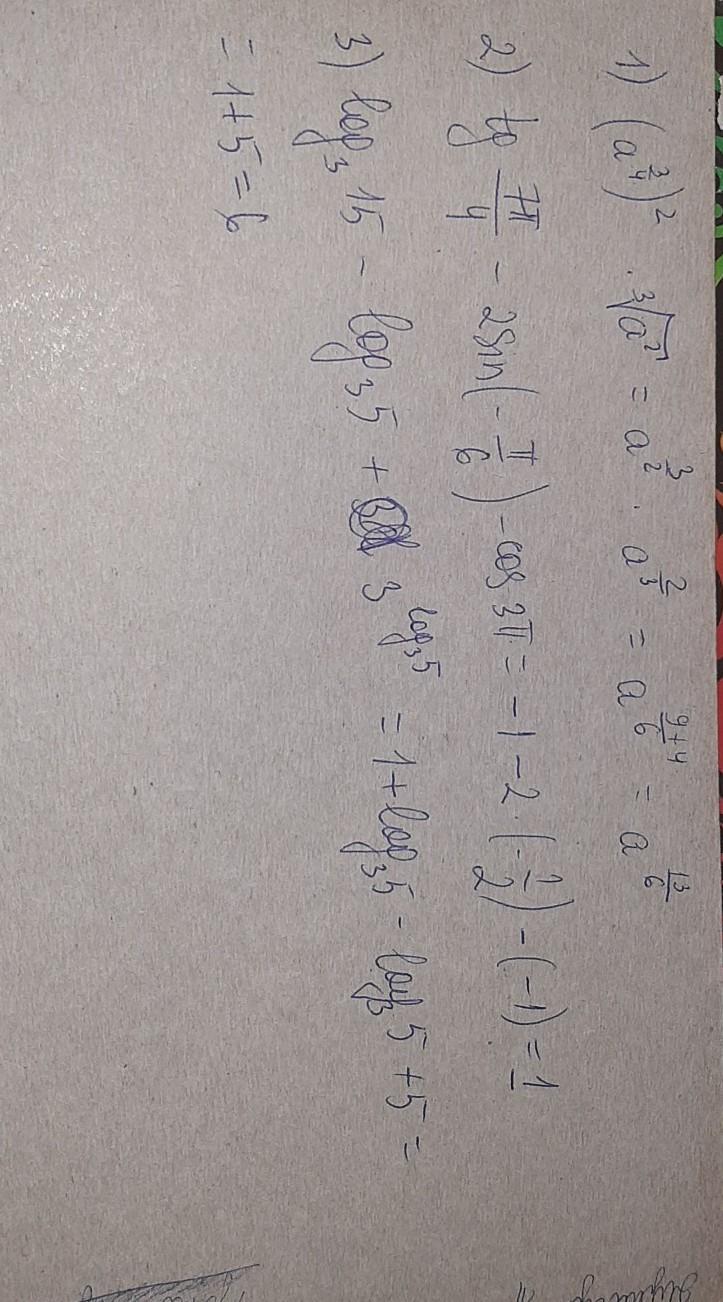 1) (a^{3/4})^2 · ∛a² = a^{3/2} · a^{2/3} = a^{(9+4)/6} = a^{13/6}
2) tg 7π/4 - 2sin(-π/6) - cos 3π = -1 - 2·(-1/2) - (-1) = 1
3) log₃15 - log₃5 + 3^{log₃5} = 1 + log₃5 - log₃5 + 5 =
= 1 + 5 = 6